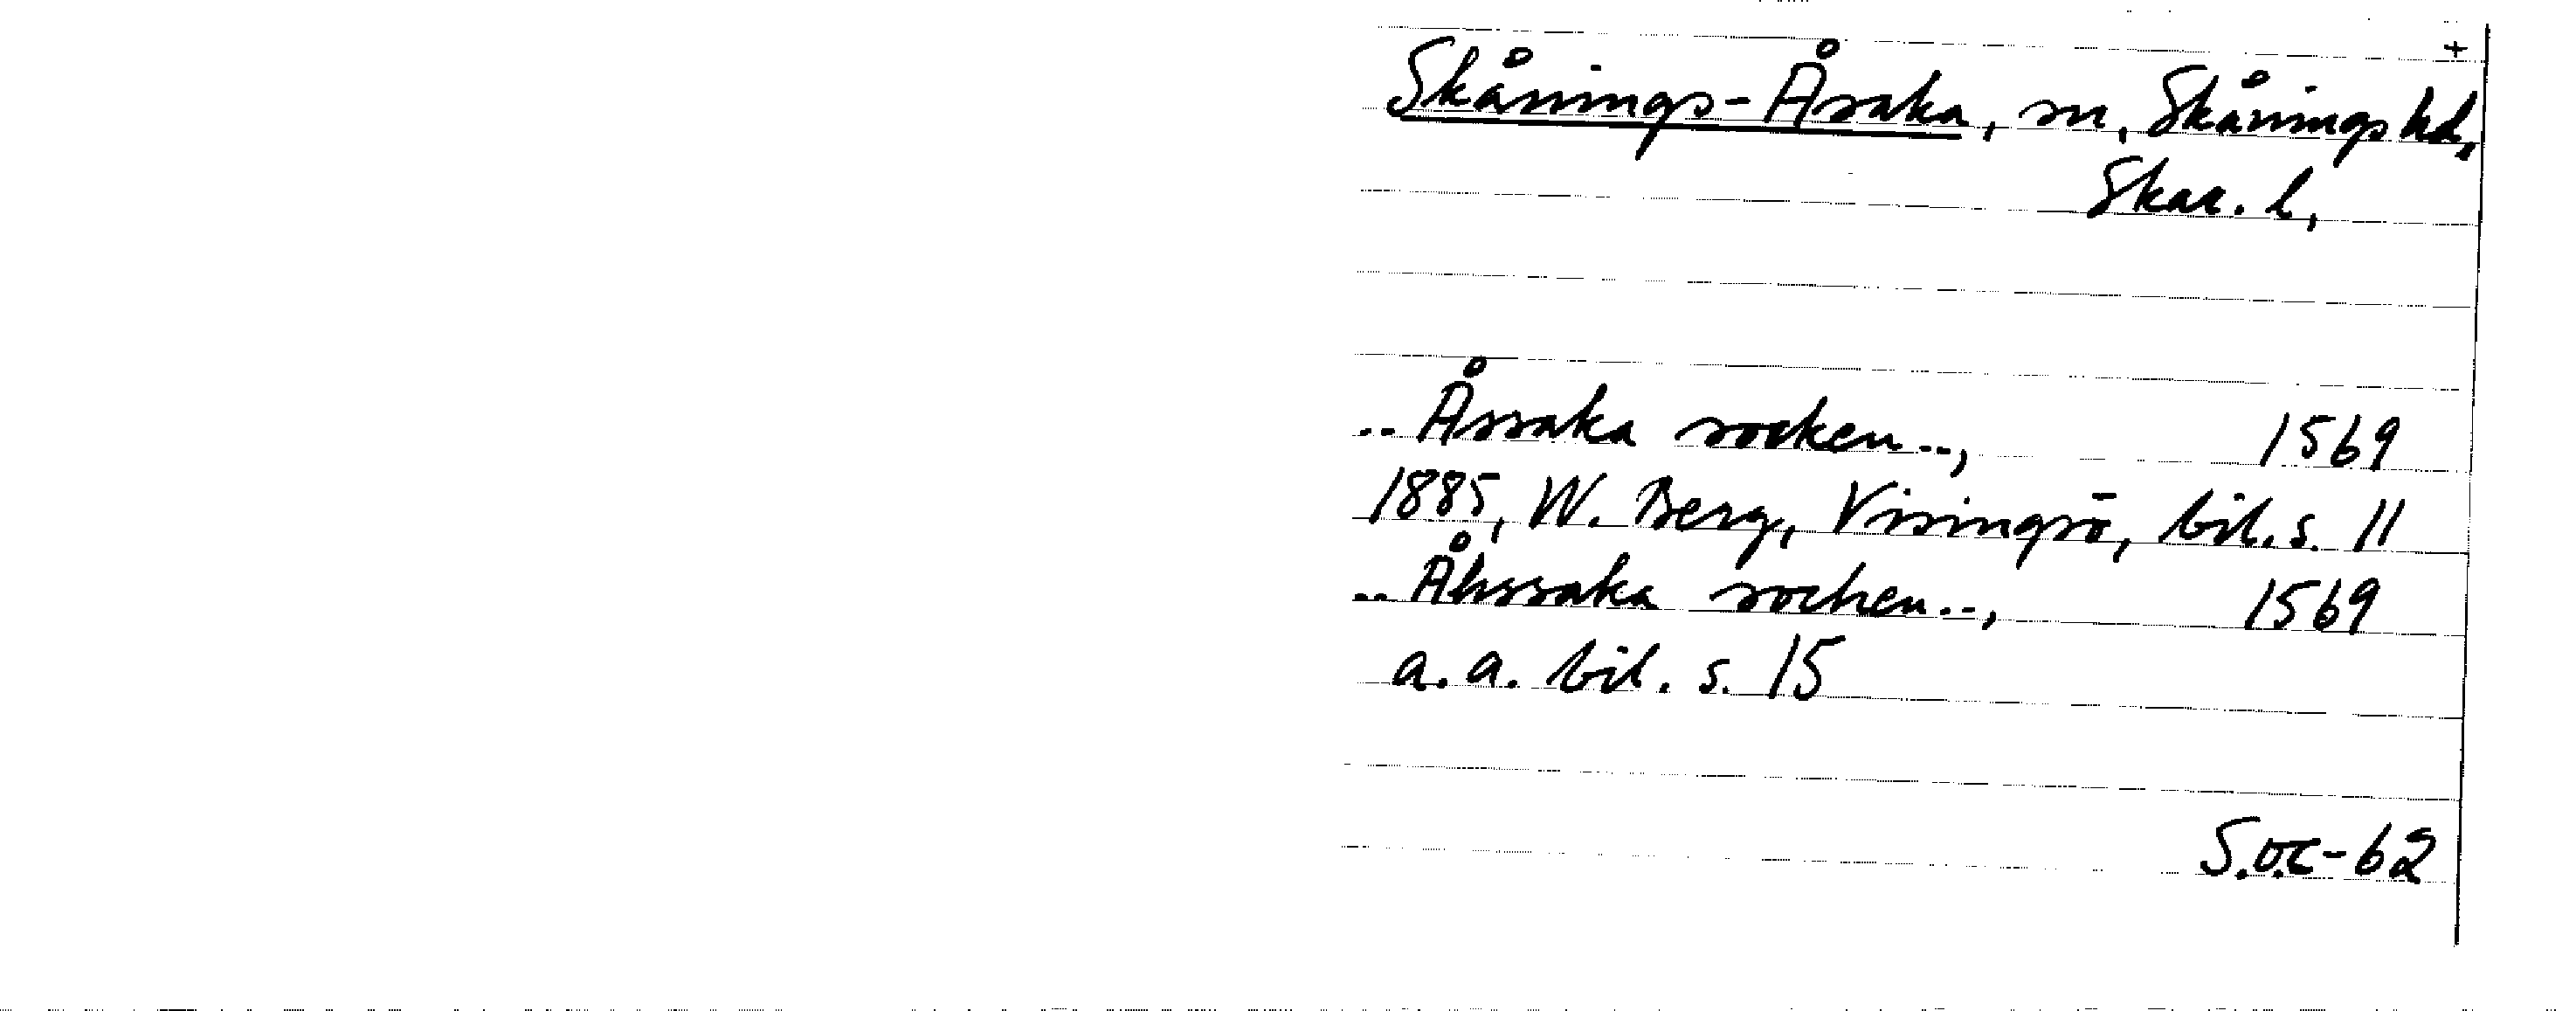 +
Skånings-Åsaka, sn, Skånings hd,
Skar. l,
.. Åssaka socken..,   1569
1885, W. Berg, Visingsö, bil. s. 11
.. Åhssaka sochen..,   1569
a.a. bil. s. 15
S.O.C-62